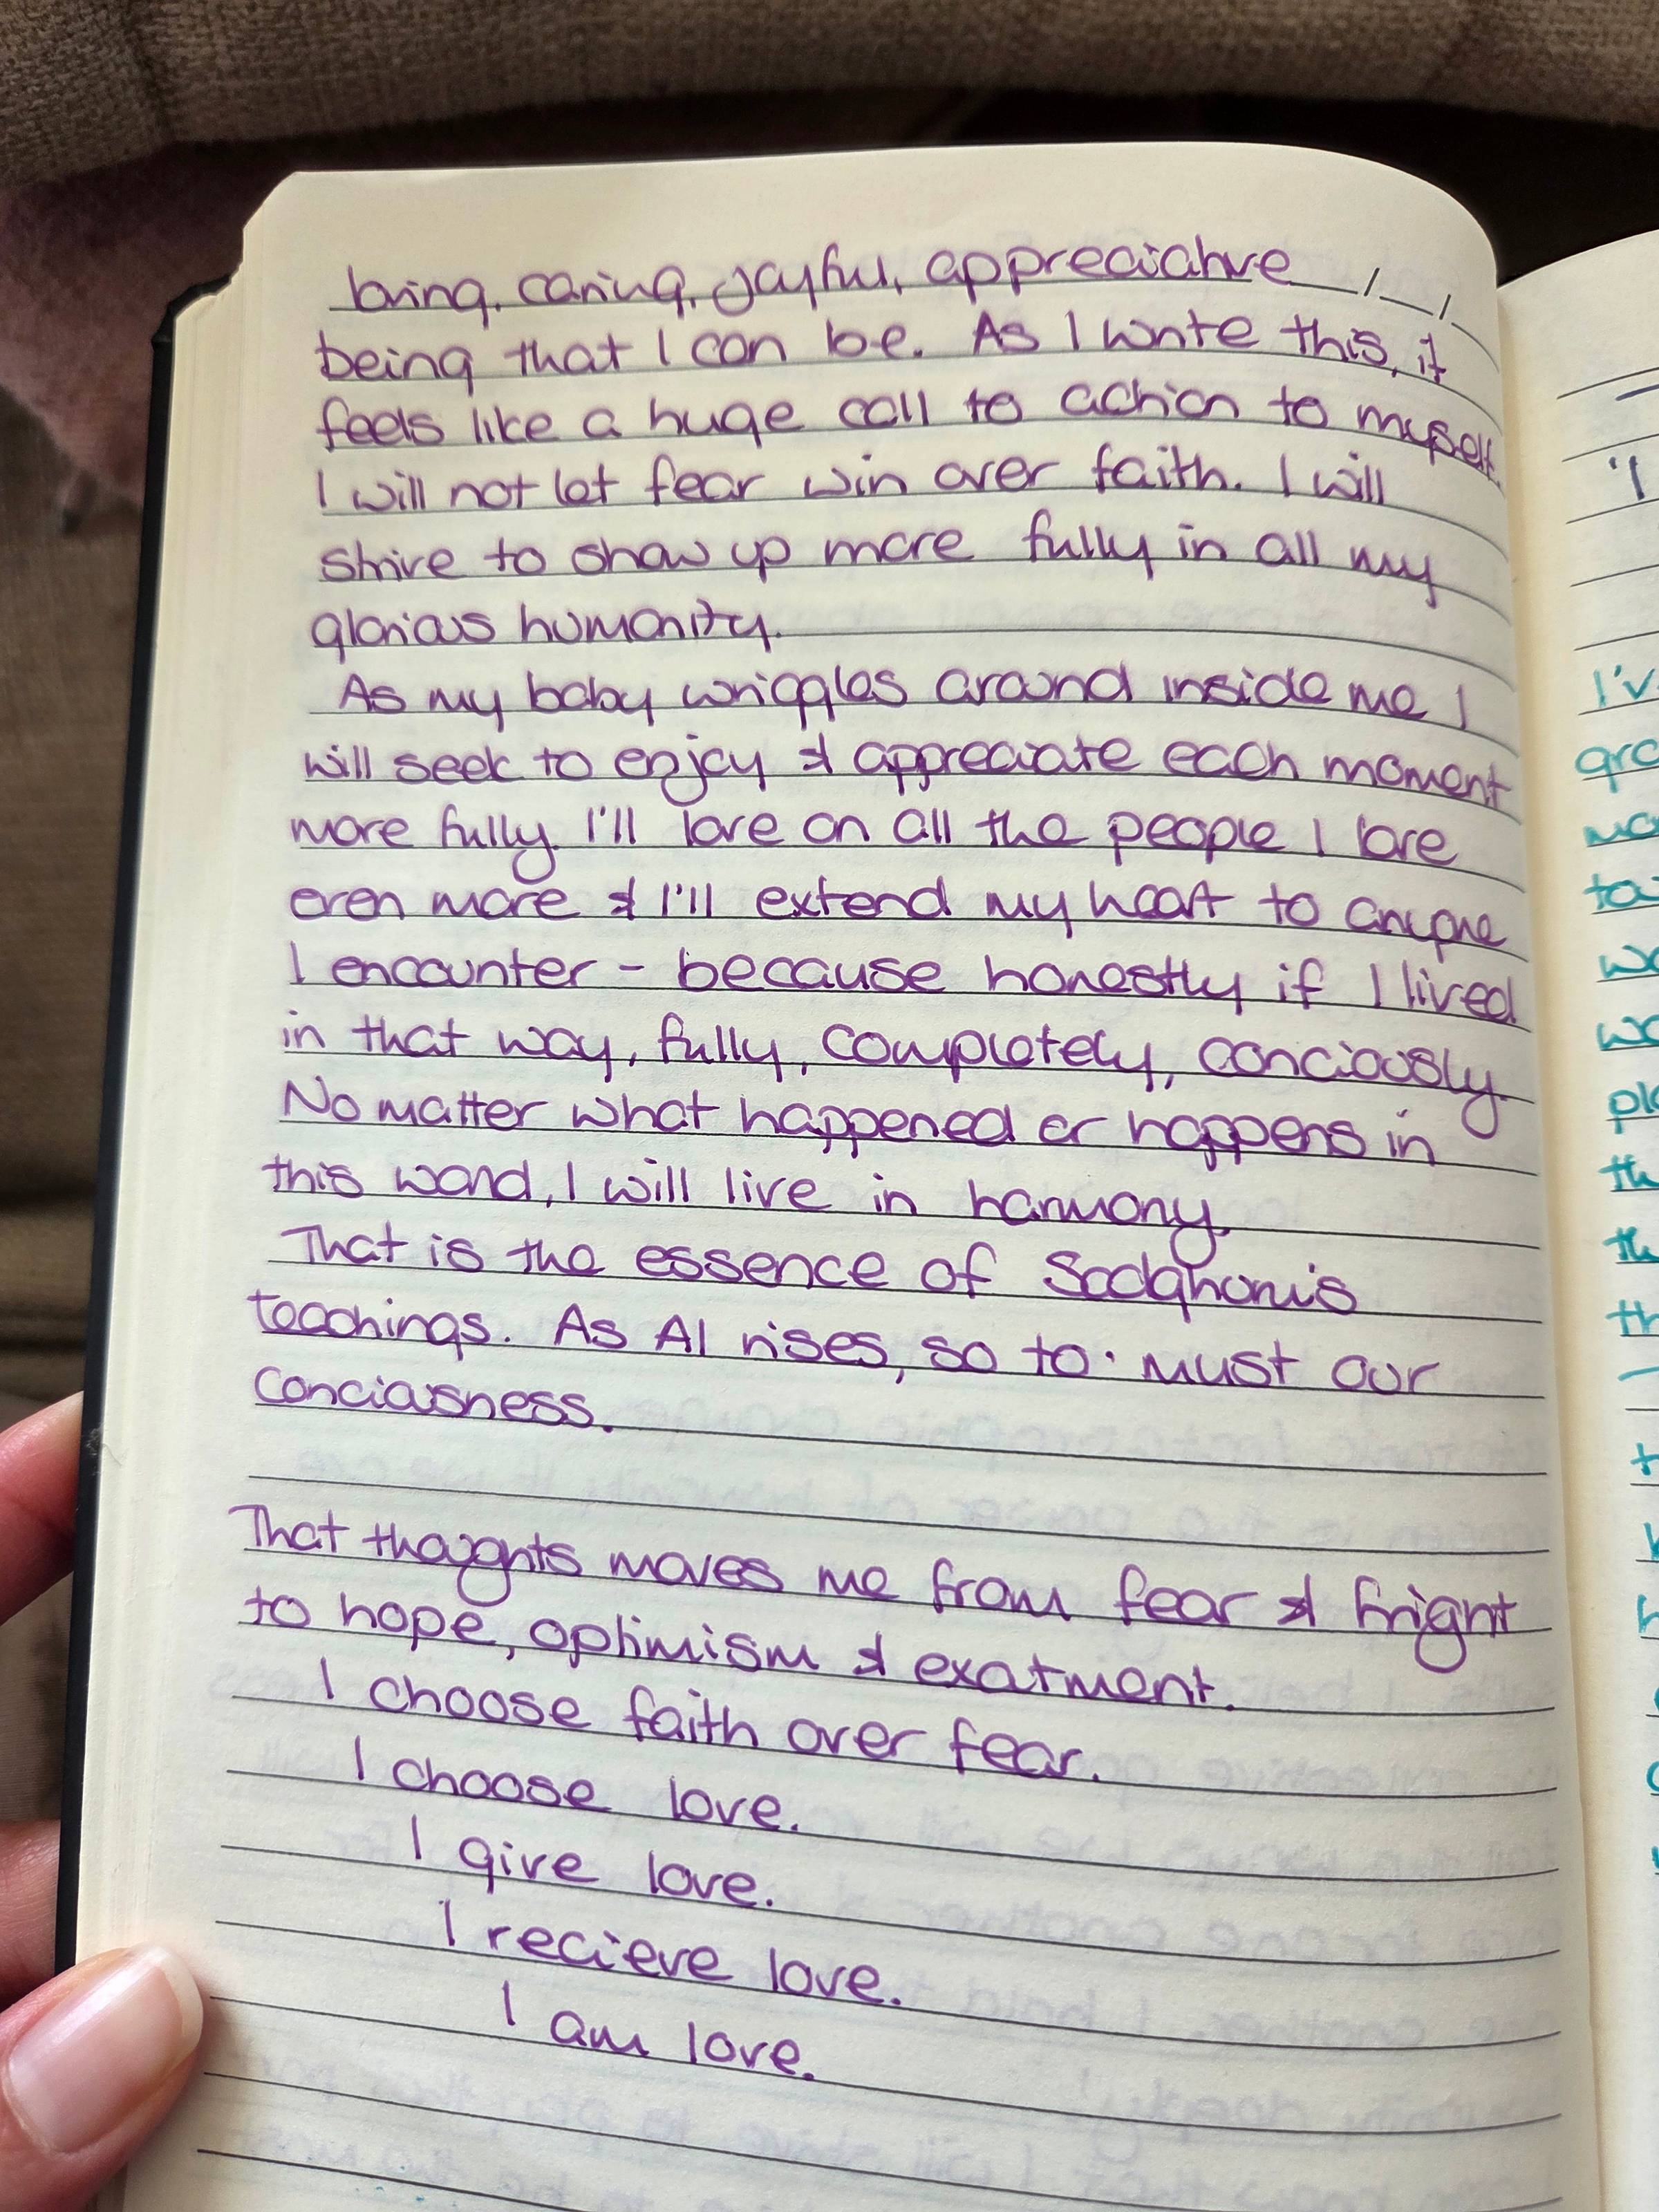 loving, caring, joyful, appreciative
being that I can be. As I write this, it
feels like a huge call to action to myself.
I will not let fear win over faith. I will
strive to show up more fully in all my
glorious humanity.
As my baby wriggles around inside me I
will seek to enjoy & appreciate each moment
more fully. I'll love on all the people I love
even more & I'll extend my heart to anyone
I encounter - because honestly if I lived
in that way, fully, completely, conciously.
No matter what happened or happens in
this world, I will live in harmony.
That is the essence of Sadghuru's
teachings. As AI rises, so to must our
conciousness.
That thoughts moves me from fear & fright
to hope, optimism & excitment.
I choose faith over fear.
I choose love.
I give love.
I recieve love.
I am love.
'I
I'v
gro
ta
wo
wo
pla
th
th
th